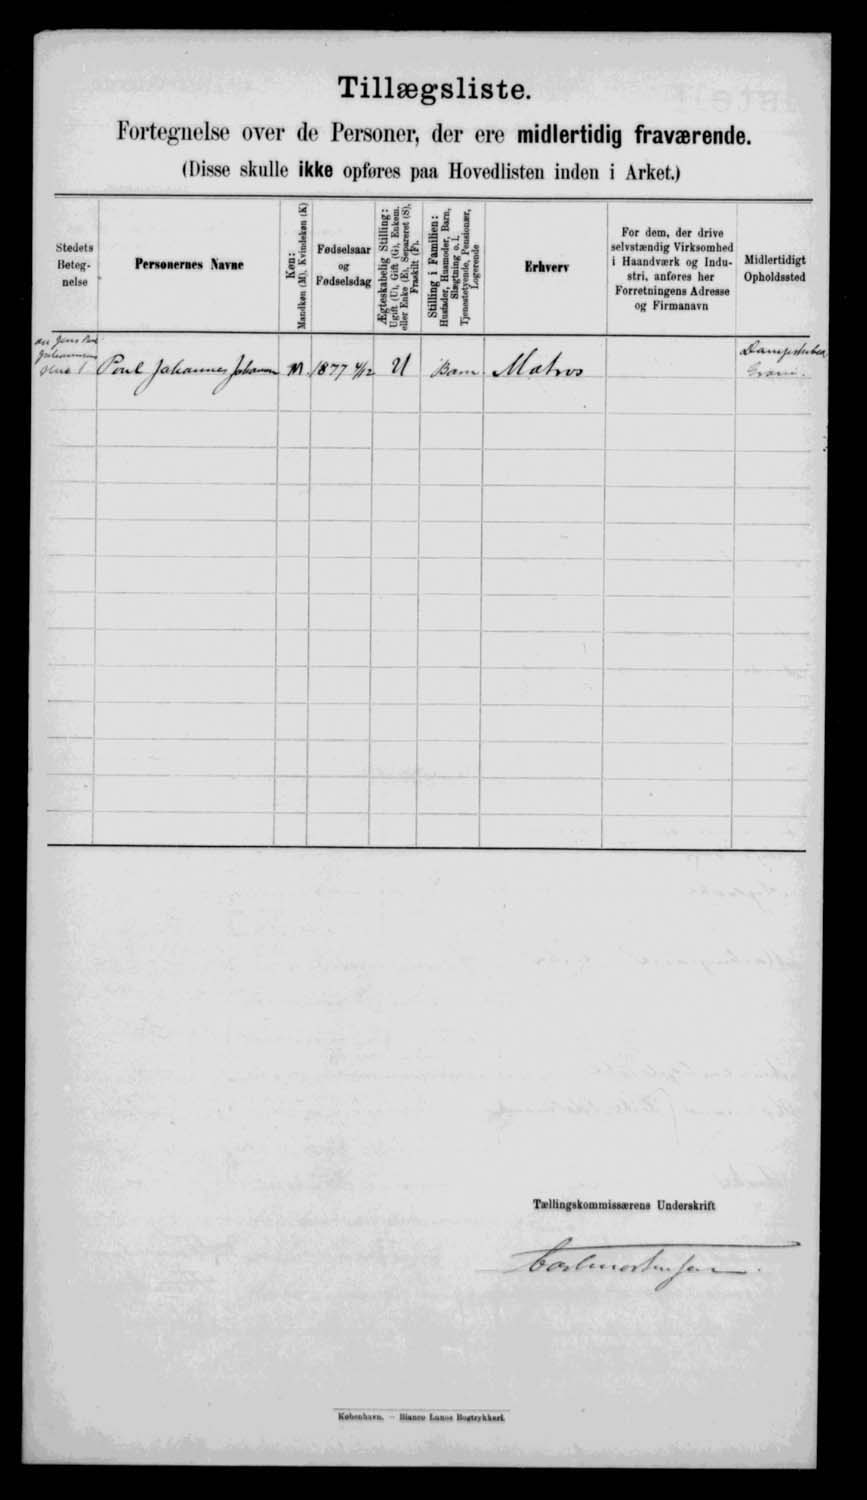 Tillægsliste.
Fortegnelse over de Personer, der ere midlertidig fraværende.
(Disse skulle ikke opføres paa Hovedlisten inden i Arket.)
Stedets
Beteg-
nelse
Personernes Navne
Køn:
Mandkøn (M). Kvindekøn (K)
Fødselsaar
og
Fødselsdag
Ægteskabelig Stilling:
Ugift (U), Gift (G), Enkem.
eller Enke (E), Separeret (S),
Fraskilt (F).
Stilling i Familien:
Husfader, Husmoder, Barn,
Slægtning o. l.
Tjenestetyende, Pensionær,
Logerende
Erhverv
For dem, der drive
selvstændig Virksomhed
i Haandværk og Indu-
stri, anføres her
Forretningens Adresse
og Firmanavn
Midlertidigt
Opholdssted
Jens
Poul Johannes Johansen M 1877 4/12 U Barn Matros
Tællingskommissærens Underskrift
København. – Bianco Lunos Bogtrykkeri.